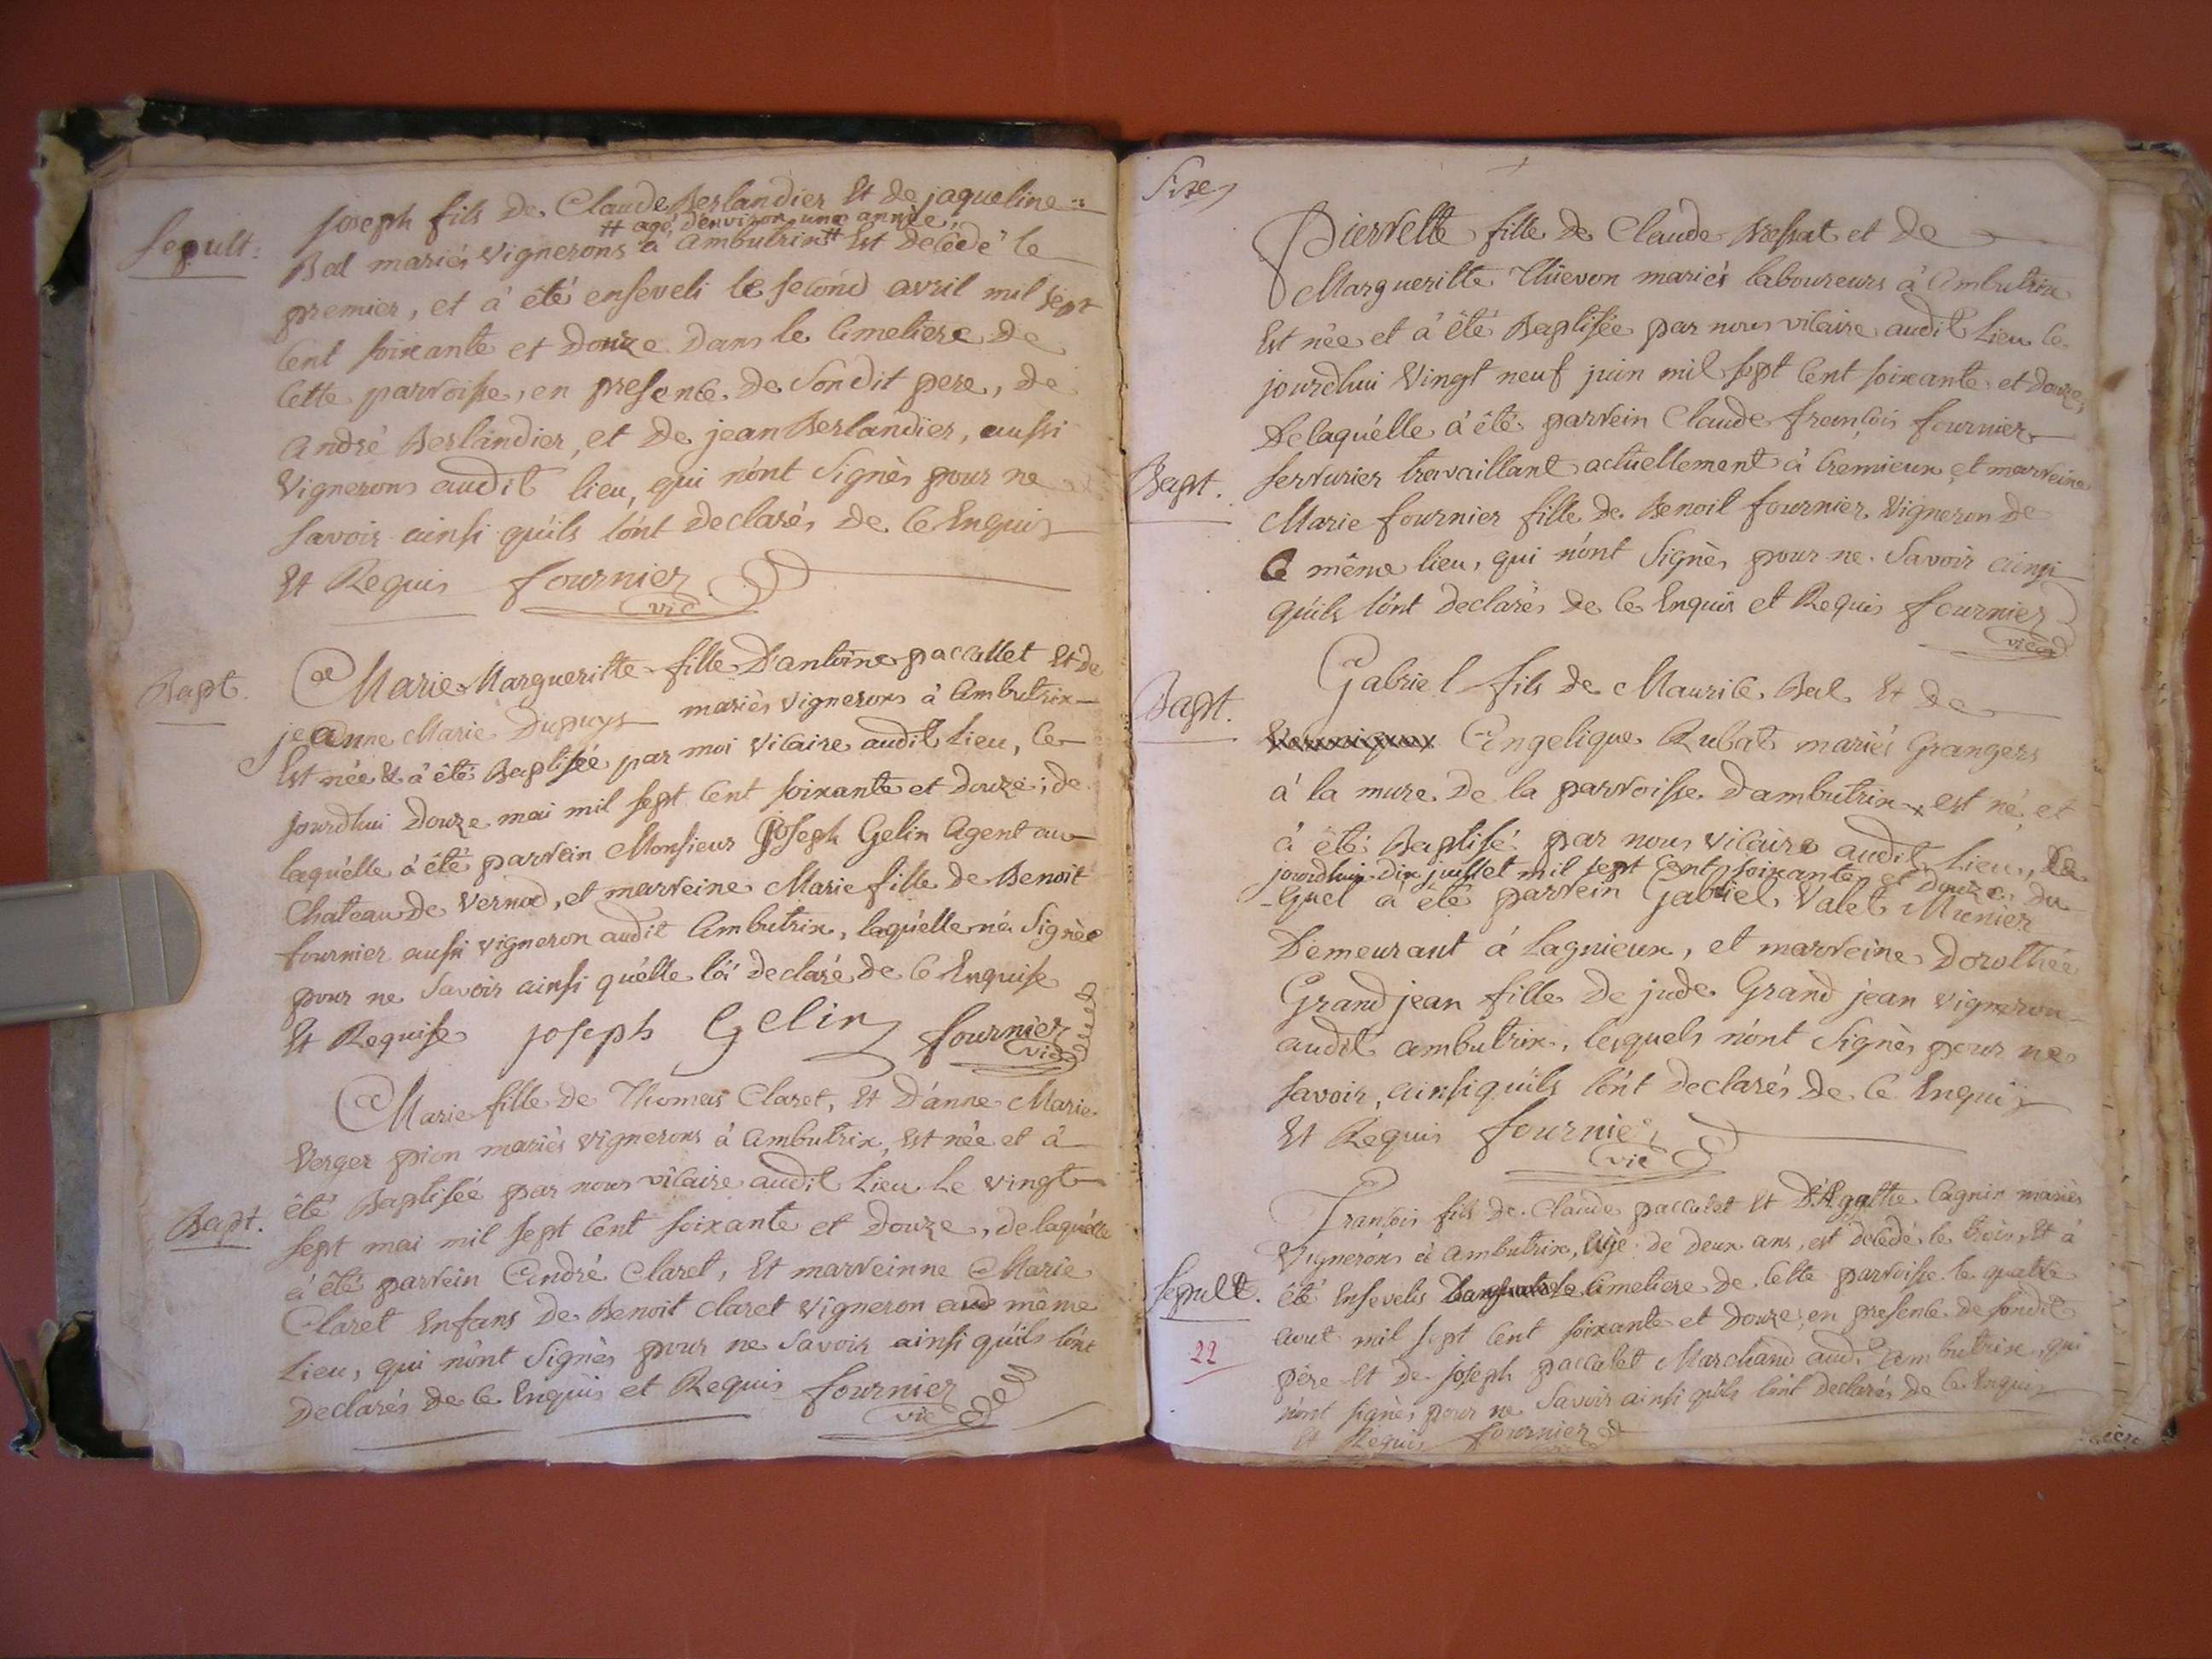 Sepult:
Joseph fils de Claude Berlandier et de jaqueline
# agé d'environ une année
Bal mariés vignerons à ambutrix # Est decedé le
premier, et à été enseveli le second avril mil sept
cent soixante et douze dans le cimetiere de
cette parroisse, en presence de sondit pere, de
André Berlandier, et de jean Berlandier, aussi
vignerons audit lieu, qui n'ont signés pour ne
savoir ainsi qu'ils l'ont declarés de ce Enquis
Et Requis fournier
vic
Bapt.
Marie Margueritte fille D'antoine paccallet Et de
jeanne Marie Dupuys mariés vignerons à Ambutrix
Est née & à été Baptisée par moi vicaire audit Lieu, ce
jourdhui douze mai mil sept cent soixante et douze; de
laquélle à été parrein Monsieur Joseph Gelin Agent au
Chateau de vernod, et marreine Marie fille de Benoit
fournier aussi vigneron audit Ambutrix, laquélle n'a signée
pour ne savoir ainsi quélle l'à declaré de ce Enquise
Et Requise joseph Gelin fournier
vic
Marie fille de Thomas Claret, Et D'anne Marie
Verger pion mariés vignerons à Ambutrix, Est née et à
été Baptisée par nous vicaire audit Lieu Le vingt
Bapt.
sept mai mil sept cent soixante et douze, de laquélle
à été parrein André Claret, Et marreinne Marie
Claret Enfans de Benoit Claret vigneron aud même
Lieu, qui n'ont signés pour ne savoir ainsi qu'ils l'ont
declarés de ce Enquis et Requis fournier
vic
Pierrette fille de Claude Bessat et de
Margueritte Thievon mariés laboureurs à Ambutrix
Est née et à été Baptisée par nous vicaire audit Lieu ce
jourdhui Vingt neuf juin mil sept cent soixante et douze,
De laquélle à été parrein Claude françois fournier
Bapt.
serrurier travaillant actuellement à Cremieux et marreine
Marie fournier fille de Benoit fournier Vigneron de
ce même lieu, qui n'ont signés pour ne savoir ainsi
qu'ils l'ont declarés de ce Enquis et Requis fournier
vic
Gabriel fils de Maurice Bal Et de
Bapt.
Veronique Angelique Rubat mariés Grangers
à la mure de la parroisse dambutrix, est né et
à été Baptisé par nous vicaire audit Lieu, ce
jourdhui dix juillet mil sept cent soixante et douze, du
quel à été parrein Gabriel Valet Munier
Demeurant à Lagnieux, et marreine Dorothée
Grand jean fille de jude Grand jean vigneron
audit ambutrix, lesquels n'ont signés pour ne
savoir, ainsi qu'ils l'ont declarés de ce Enquis
Et Requis fournier
vic
François fils de Claude paccalet Et D'Agathe Cagnin mariés
Vignerons à Ambutrix, âgé de deux ans, est décédé le trois, Et à
Sepult.
été Ensevelis dans le Cimetiere de cette parroisse le quatre
aout mil sept cent soixante et douze, en presence de sondit
22
pére Et de joseph paccalet Marchand audit Ambutrix, qui
n'ont signés pour ne savoir ainsi qu'ils l'ont declarés de ce Enquis
Et Requis fournier